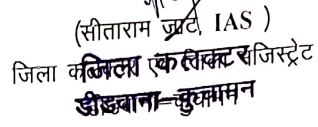 (सीताराम जाट, IAS )
जिला कलक्टर एवं जिला मजिस्ट्रेट
जिला कलक्टर
डीडवाना-कुचामन